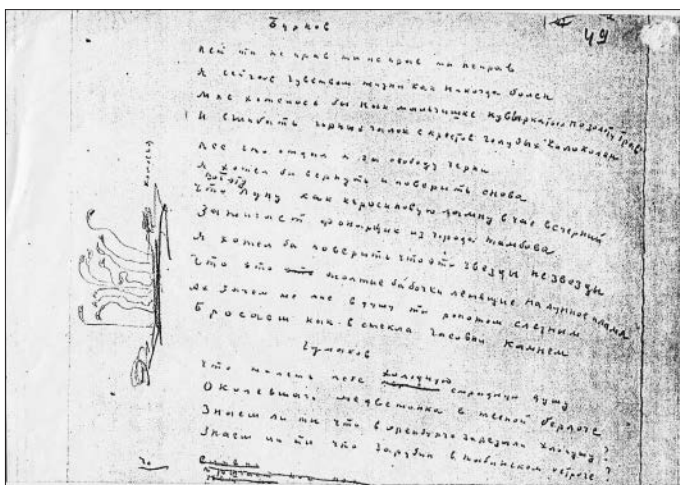 49
Бурнов
Нет ты не прав ты не прав ты неправ
Я сейчас чувством жизни как никогда болен
Мне хотелось бы как мальчишке кувыркаться по золоту трав
И сшибать черных галок с крестов голубых колоколен
Все что отдал я за свободу черни
Я хотел бы вернуть и поверить снова
Что вот эту
луну как керосиновую лампу в час вечерний
Зажигает фонарщик из города Тамбова
Я хотел бы поверить что эти звезды не звезды
Что это желтые бабочки летящие на лунное пламя
Ах зачем же мне в душу ты ропотом слезным
Бросаеш как в стекла часовни камнем
Чумаков
Что жалеть тебе холодную смрадную душу
Околевшаго медвежонка в тесной берлоге?
Знаеш ли ты что в Оренбурге зарезали Хлопушу?
Знаеш ли ты что Зарубин в Табинском остроге?